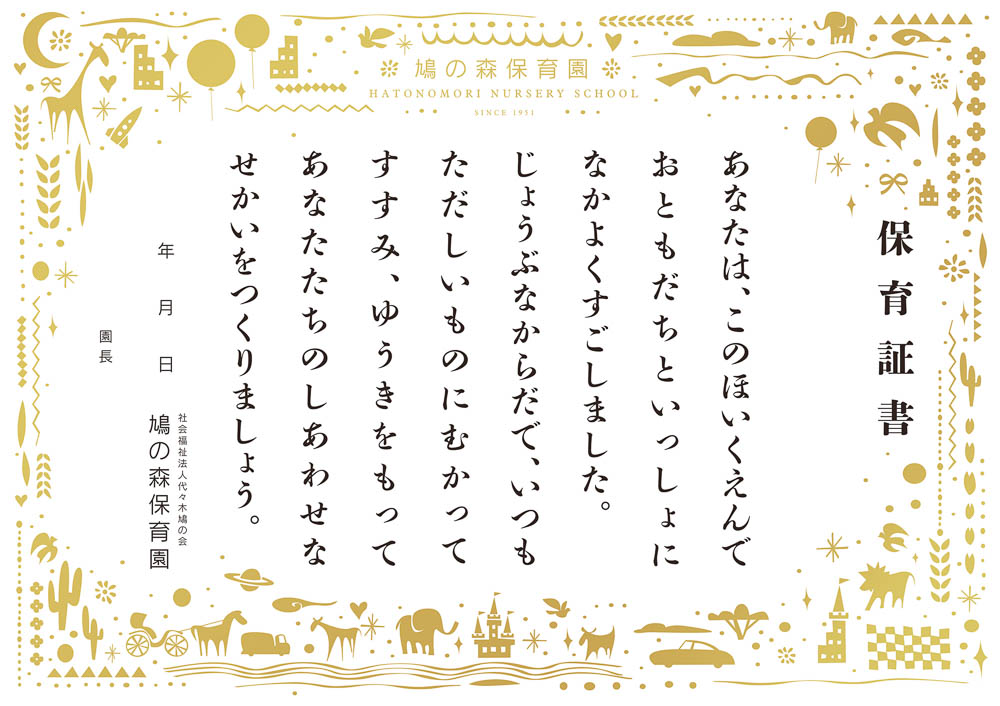 鳩の森保育園
HATONOMORI NURSERY SCHOOL
SINCE 1951
保育証書
あなたは、このほいくえんで
おともだちといっしょに
なかよくすごしました。
じょうぶなからだで、いつも
ただしいものにむかって
すすみ、ゆうきをもって
あなたたちのしあわせな
せかいをつくりましょう。
年 月 日
社会福祉法人代々木鳩の会
鳩の森保育園
園長